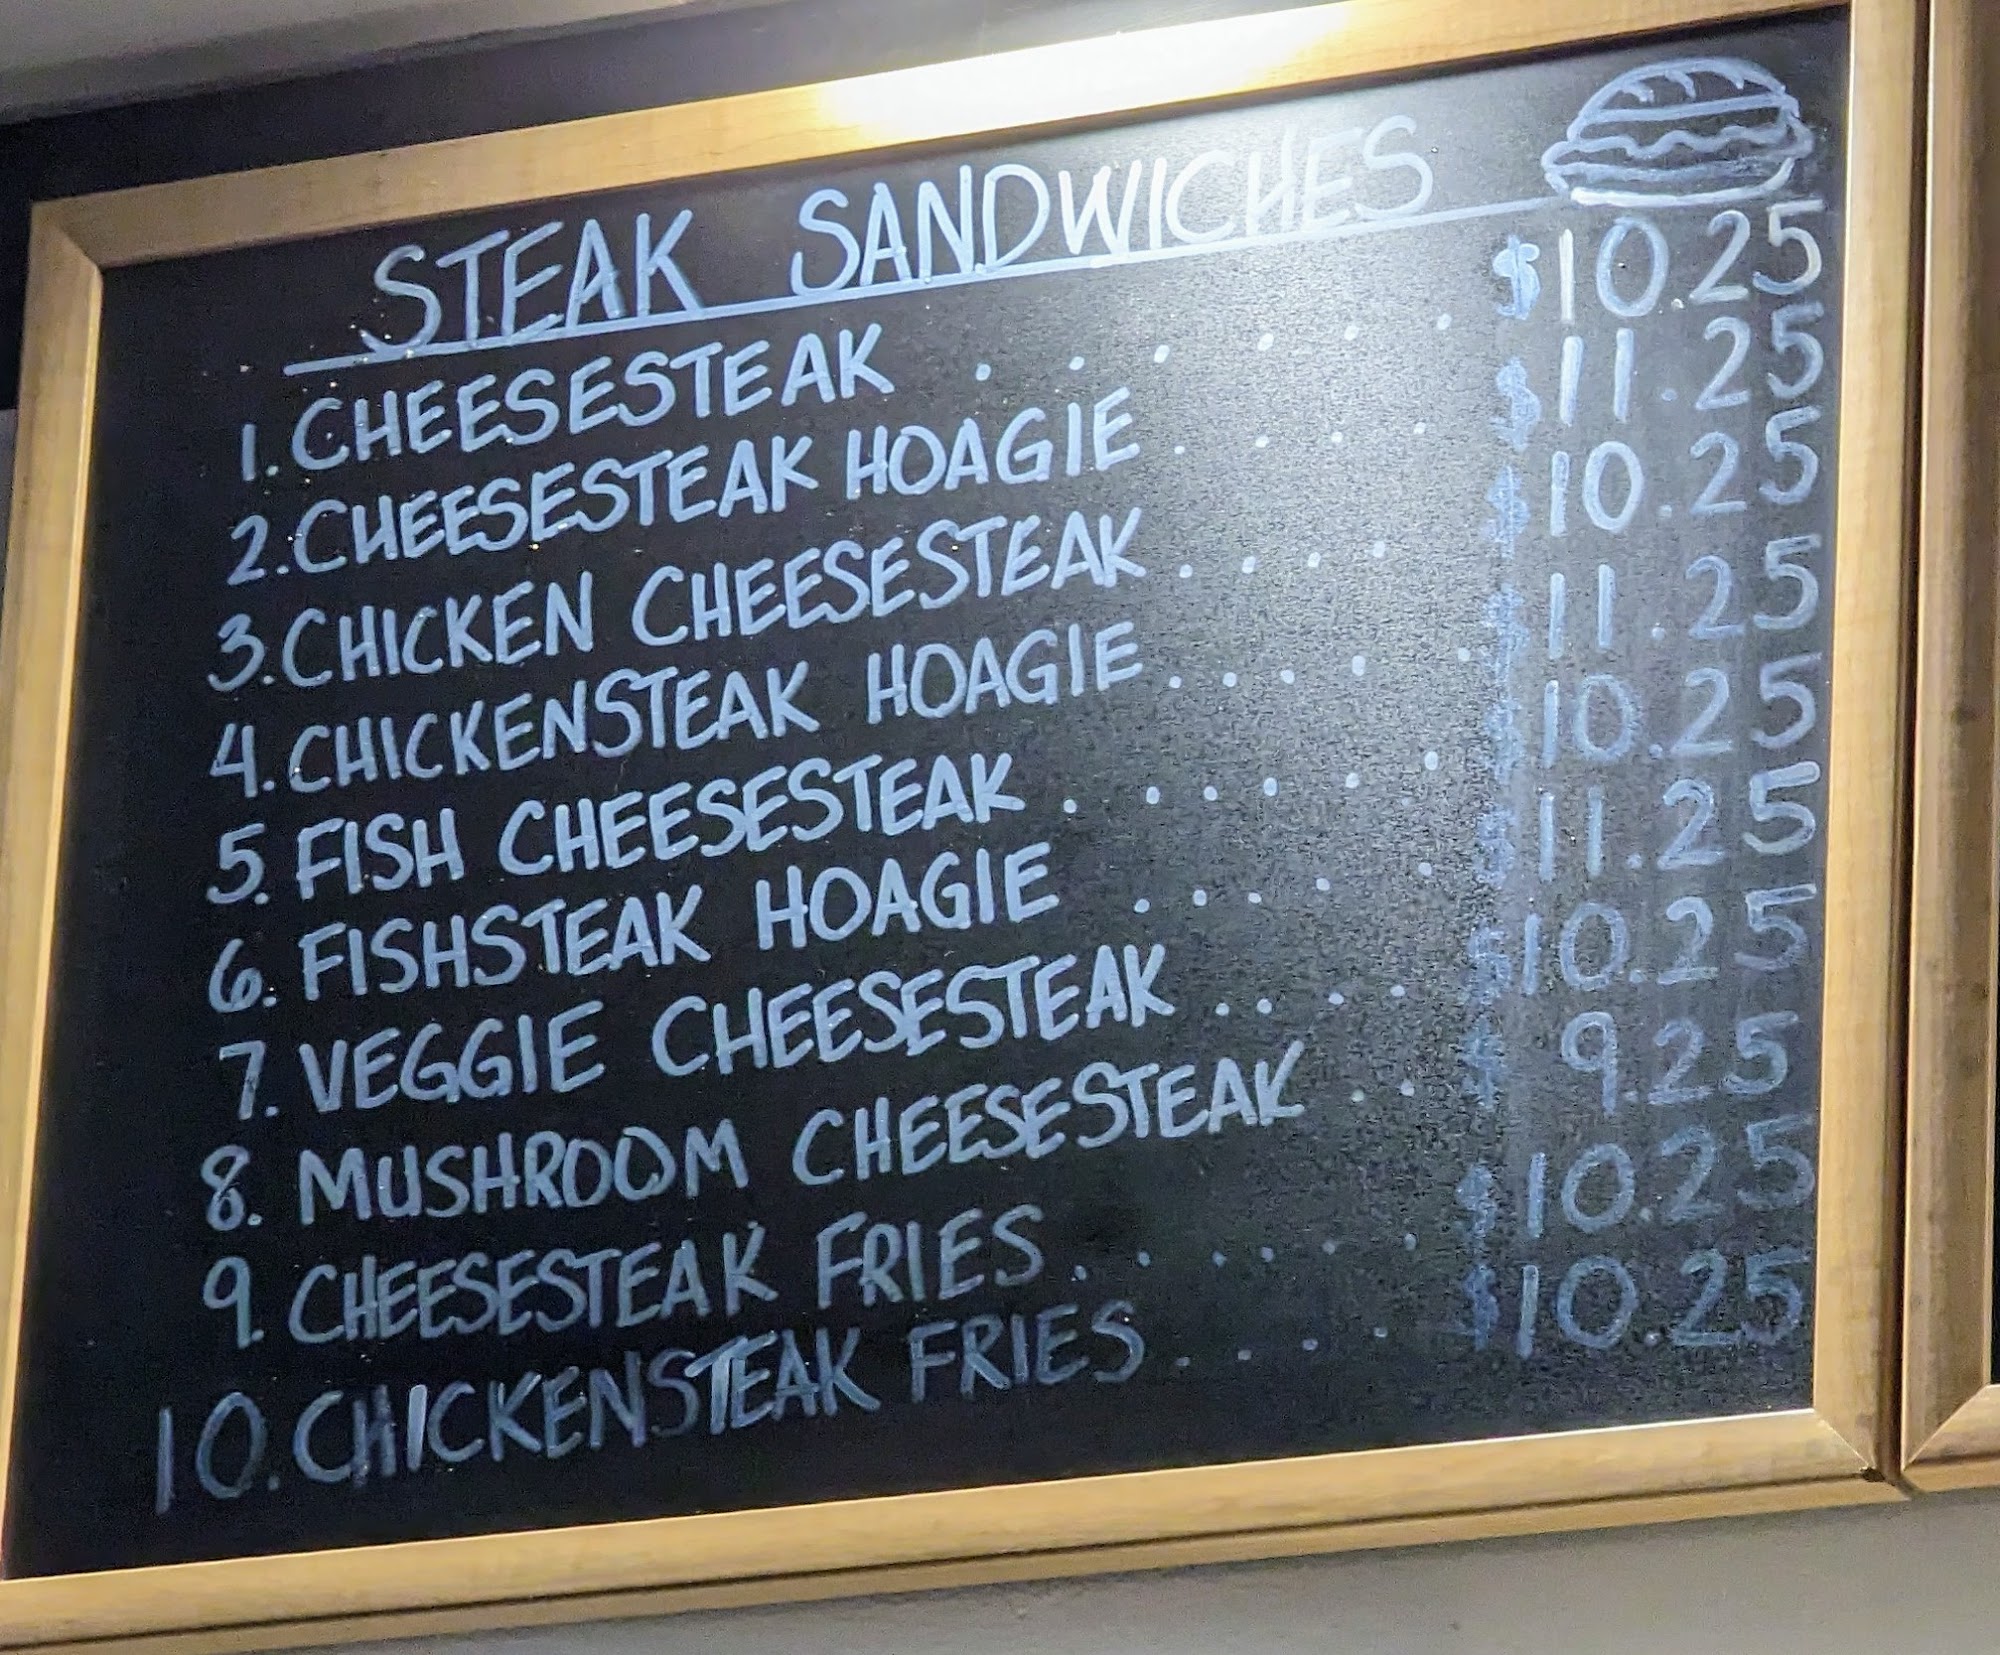 STEAK SANDWICHES
1. CHEESESTEAK . . . . . $10.25
2. CHEESESTEAK HOAGIE . . . . $11.25
3. CHICKEN CHEESESTEAK . . . . $10.25
4. CHICKENSTEAK HOAGIE . . . . . . $11.25
5. FISH CHEESESTEAK . . . . . . $10.25
6. FISHSTEAK HOAGIE . . . . . . $11.25
7. VEGGIE CHEESESTEAK . . . . $10.25
8. MUSHROOM CHEESESTEAK . . $9.25
9. CHEESESTEAK FRIES . . . . . . $10.25
10. CHICKENSTEAK FRIES . . . . . $10.25